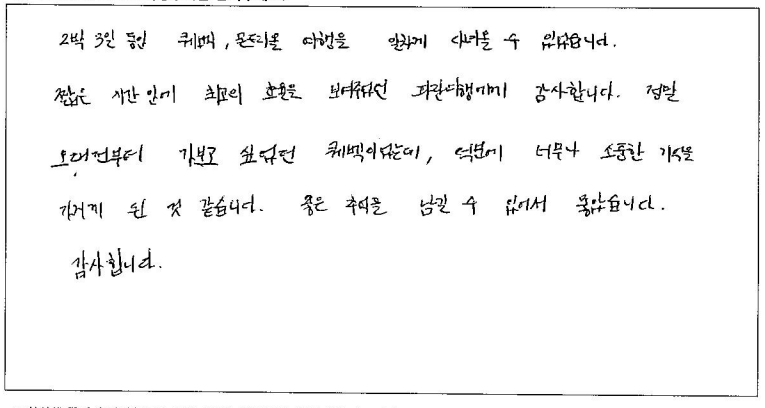 2박 3일 동안 퀘벡, 몬트리올 여행을 알차게 다녀올 수 있었습니다.
짧은 시간 안에 최고의 효율을 보여주셨던 파란여행에게 감사합니다. 정말
오래전부터 가보고 싶었던 퀘벡이었는데, 덕분에 너무나 소중한 기억을
가지게 된 것 같습니다. 좋은 추억을 남길 수 있어서 좋았습니다.
감사합니다.